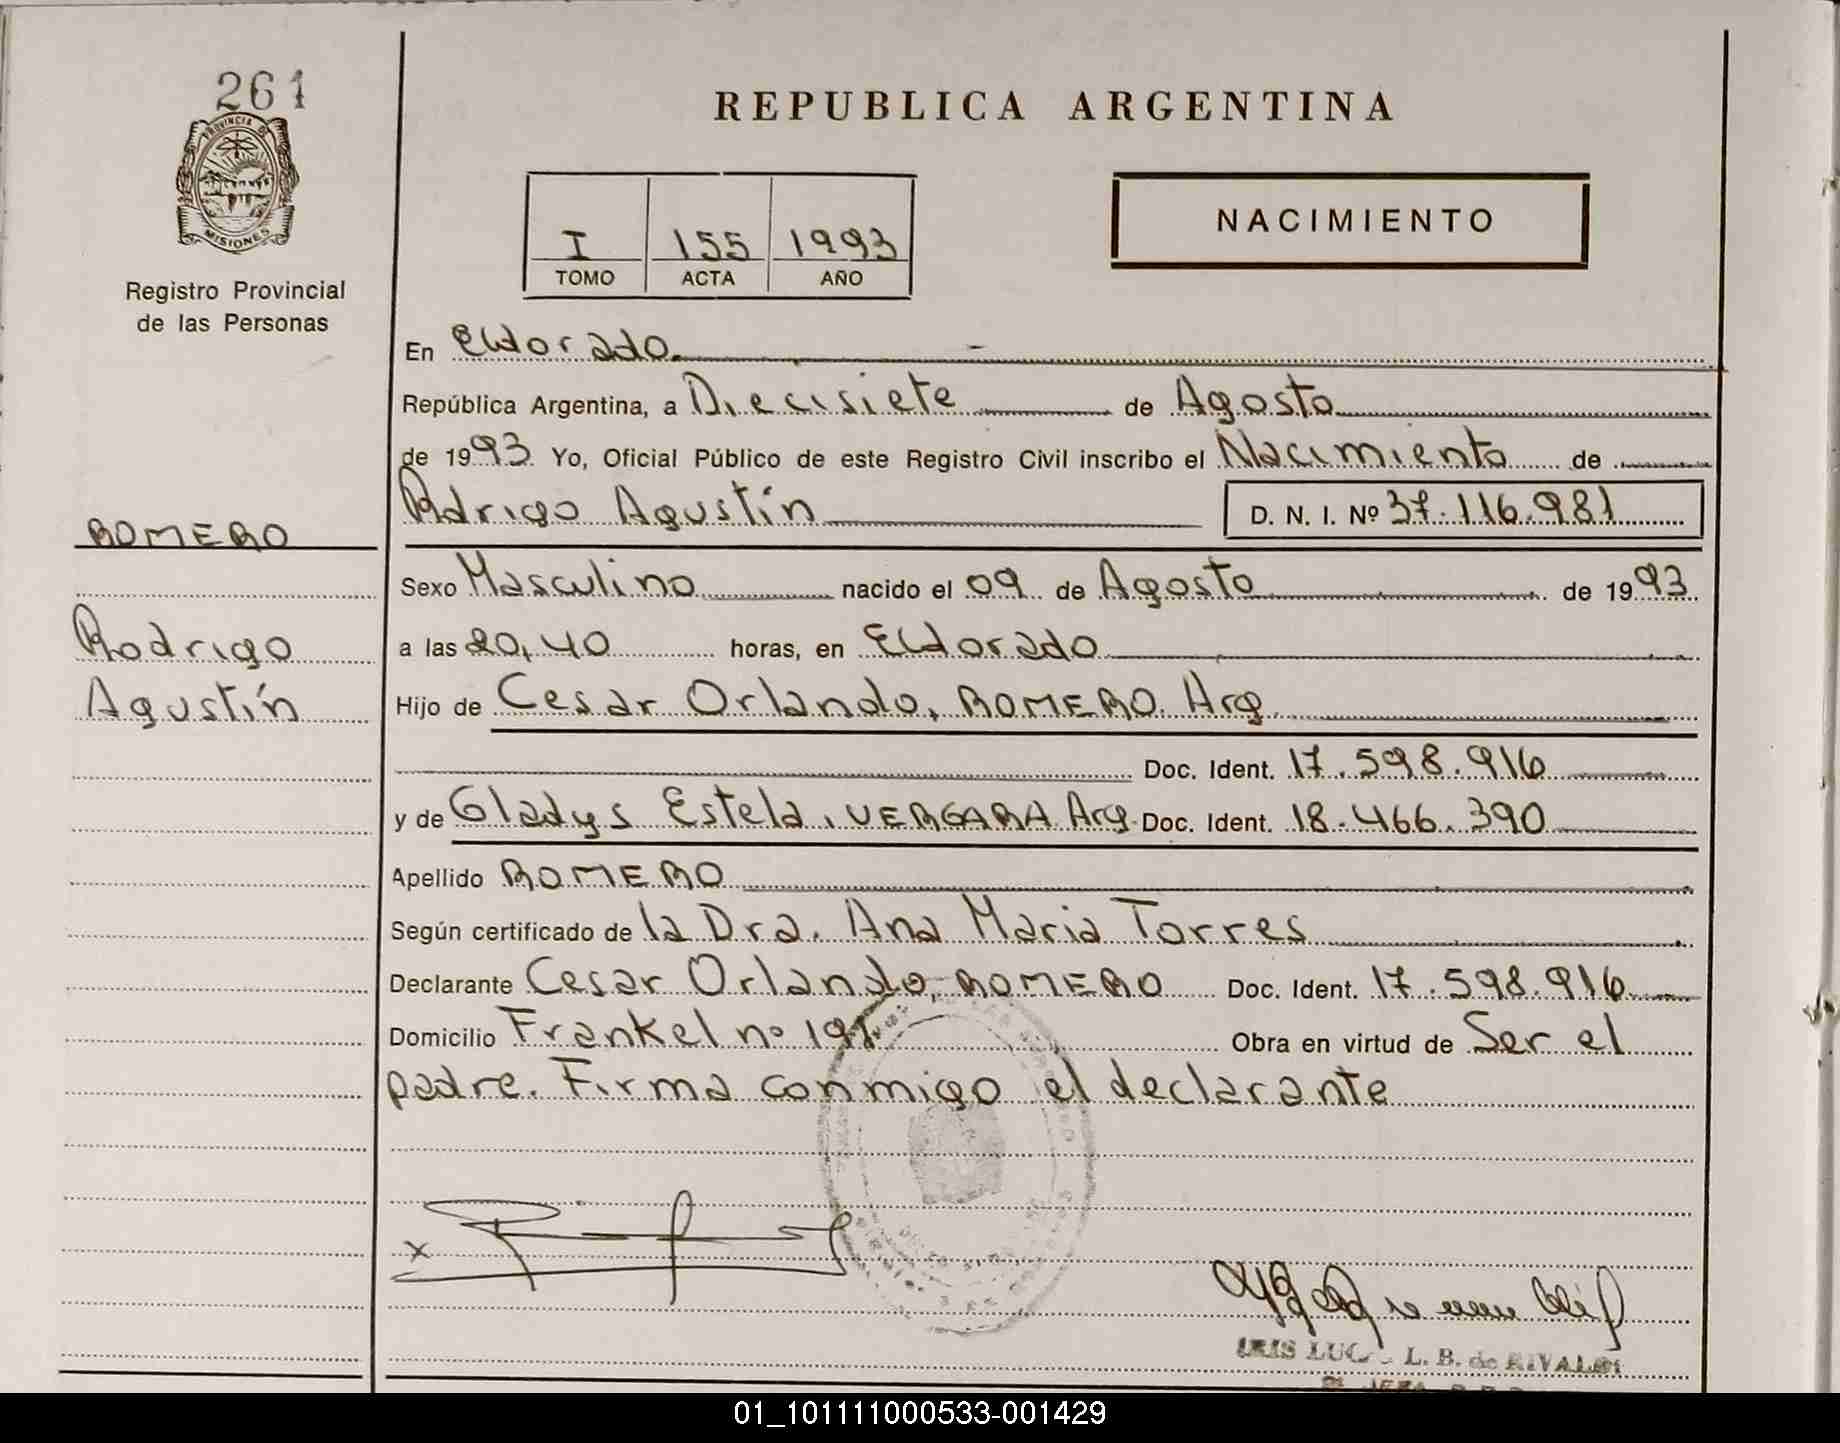 261
PROVINCIA DE
MISIONES
Registro Provincial
de las Personas
ROMERO
Rodrigo
Agustín
REPUBLICA ARGENTINA
I 155 1993
TOMO ACTA AÑO
NACIMIENTO
En Eldorado
República Argentina, a Diecisiete de Agosto
de 1993 Yo, Oficial Público de este Registro Civil inscribo el Nacimiento de
Rodrigo Agustín D. N. I. Nº 37.116.981
Sexo Masculino nacido el 09 de Agosto de 1993
a las 20,40 horas, en Eldorado
Hijo de Cesar Orlando, ROMERO. Arg.
Doc. Ident. 17.598.916
y de Gladys Estela, VERGARA Arg. Doc. Ident. 18.466.390
Apellido ROMERO
Según certificado de la Dra. Ana Maria Torres
Declarante Cesar Orlando, ROMERO Doc. Ident. 17.598.916
Domicilio Frankel nº Obra en virtud de Ser el
padre. Firma conmigo el declarante
x
IRIS L. B. de
01_101111000533-001429